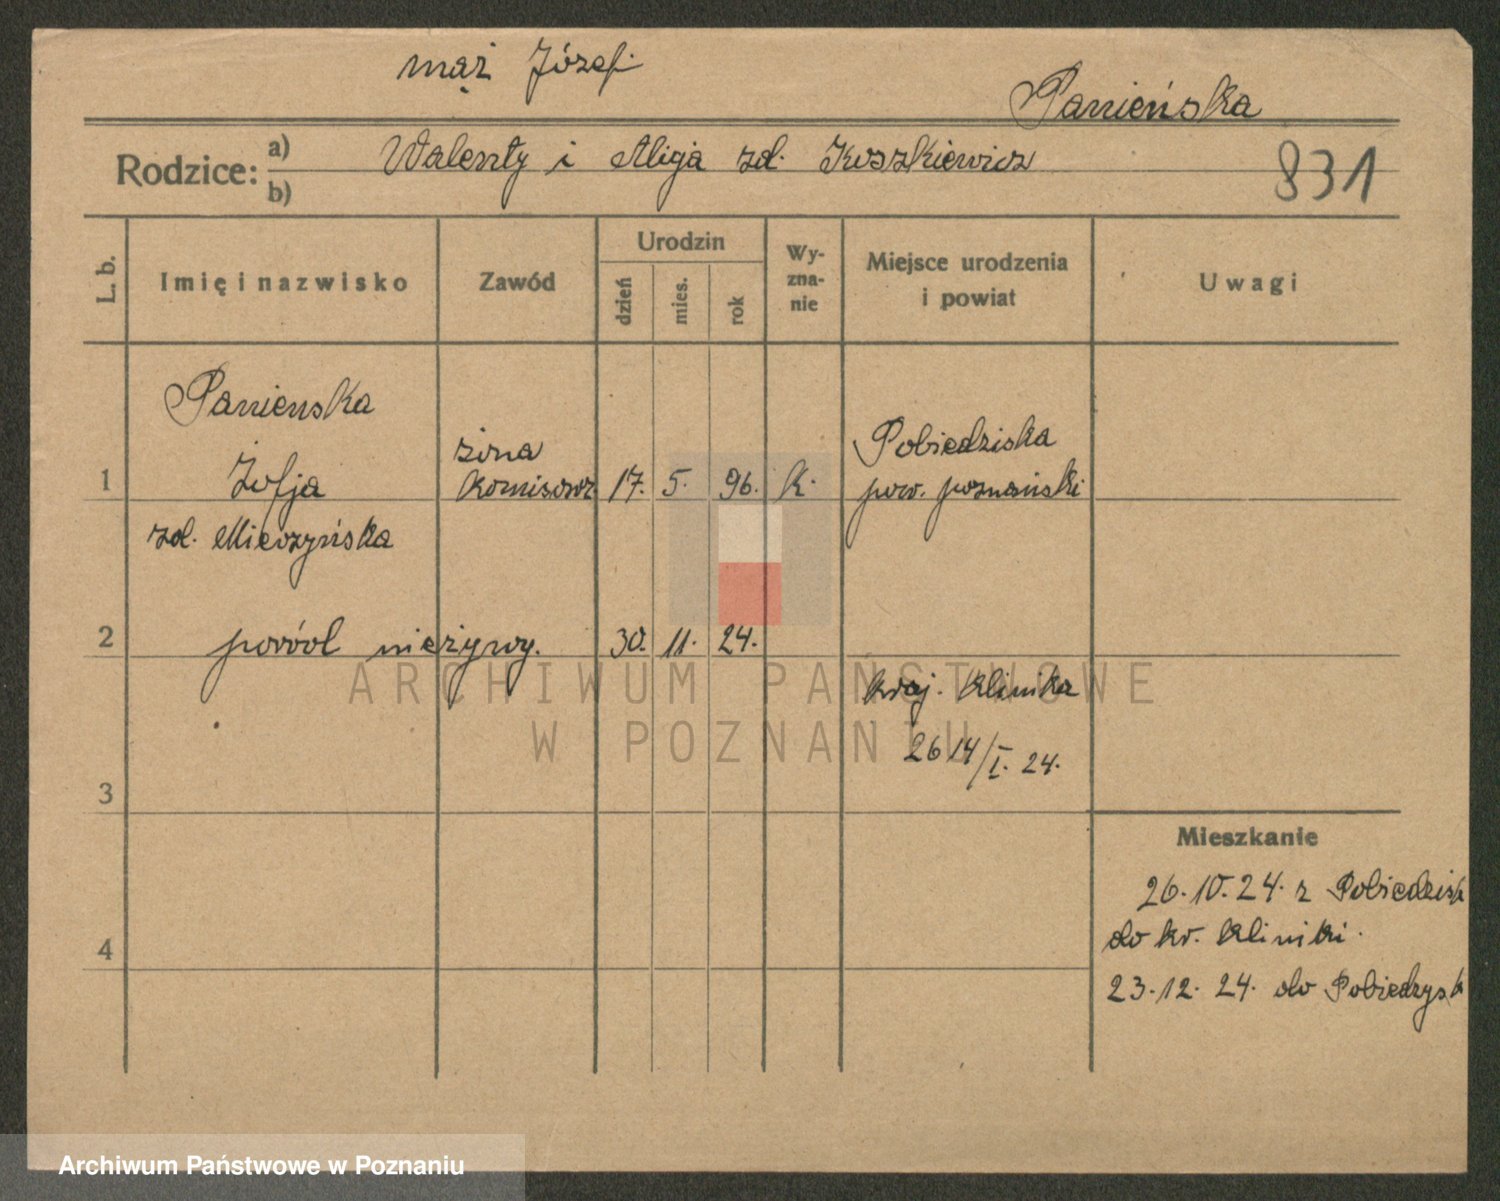 mąż Józef
Panieńska
Rodzice: a) Walenty i Alicja zd. Koszkiewicz
b)
831
L. b.
Imię i nazwisko
Zawód
Urodzin
dzień
mies.
rok
Wy-
zna-
nie
Miejsce urodzenia
i powiat
Uwagi
Panienska
1 Zofja żona komisowz 17. 5. 96. k. Pobiedziska
pow. poznański
zd. Mieczyńska
2 poród nieżywy. 30. 11. 24.
kraj. klinika
2614/I. 24.
3
Mieszkanie
26.10.24. z Pobiedzisk
do kr. kliniki.
4
23.12.24. do Pobiedzysk
ARCHIWUM PAŃSTWOWE
W POZNANIU
Archiwum Państwowe w Poznaniu